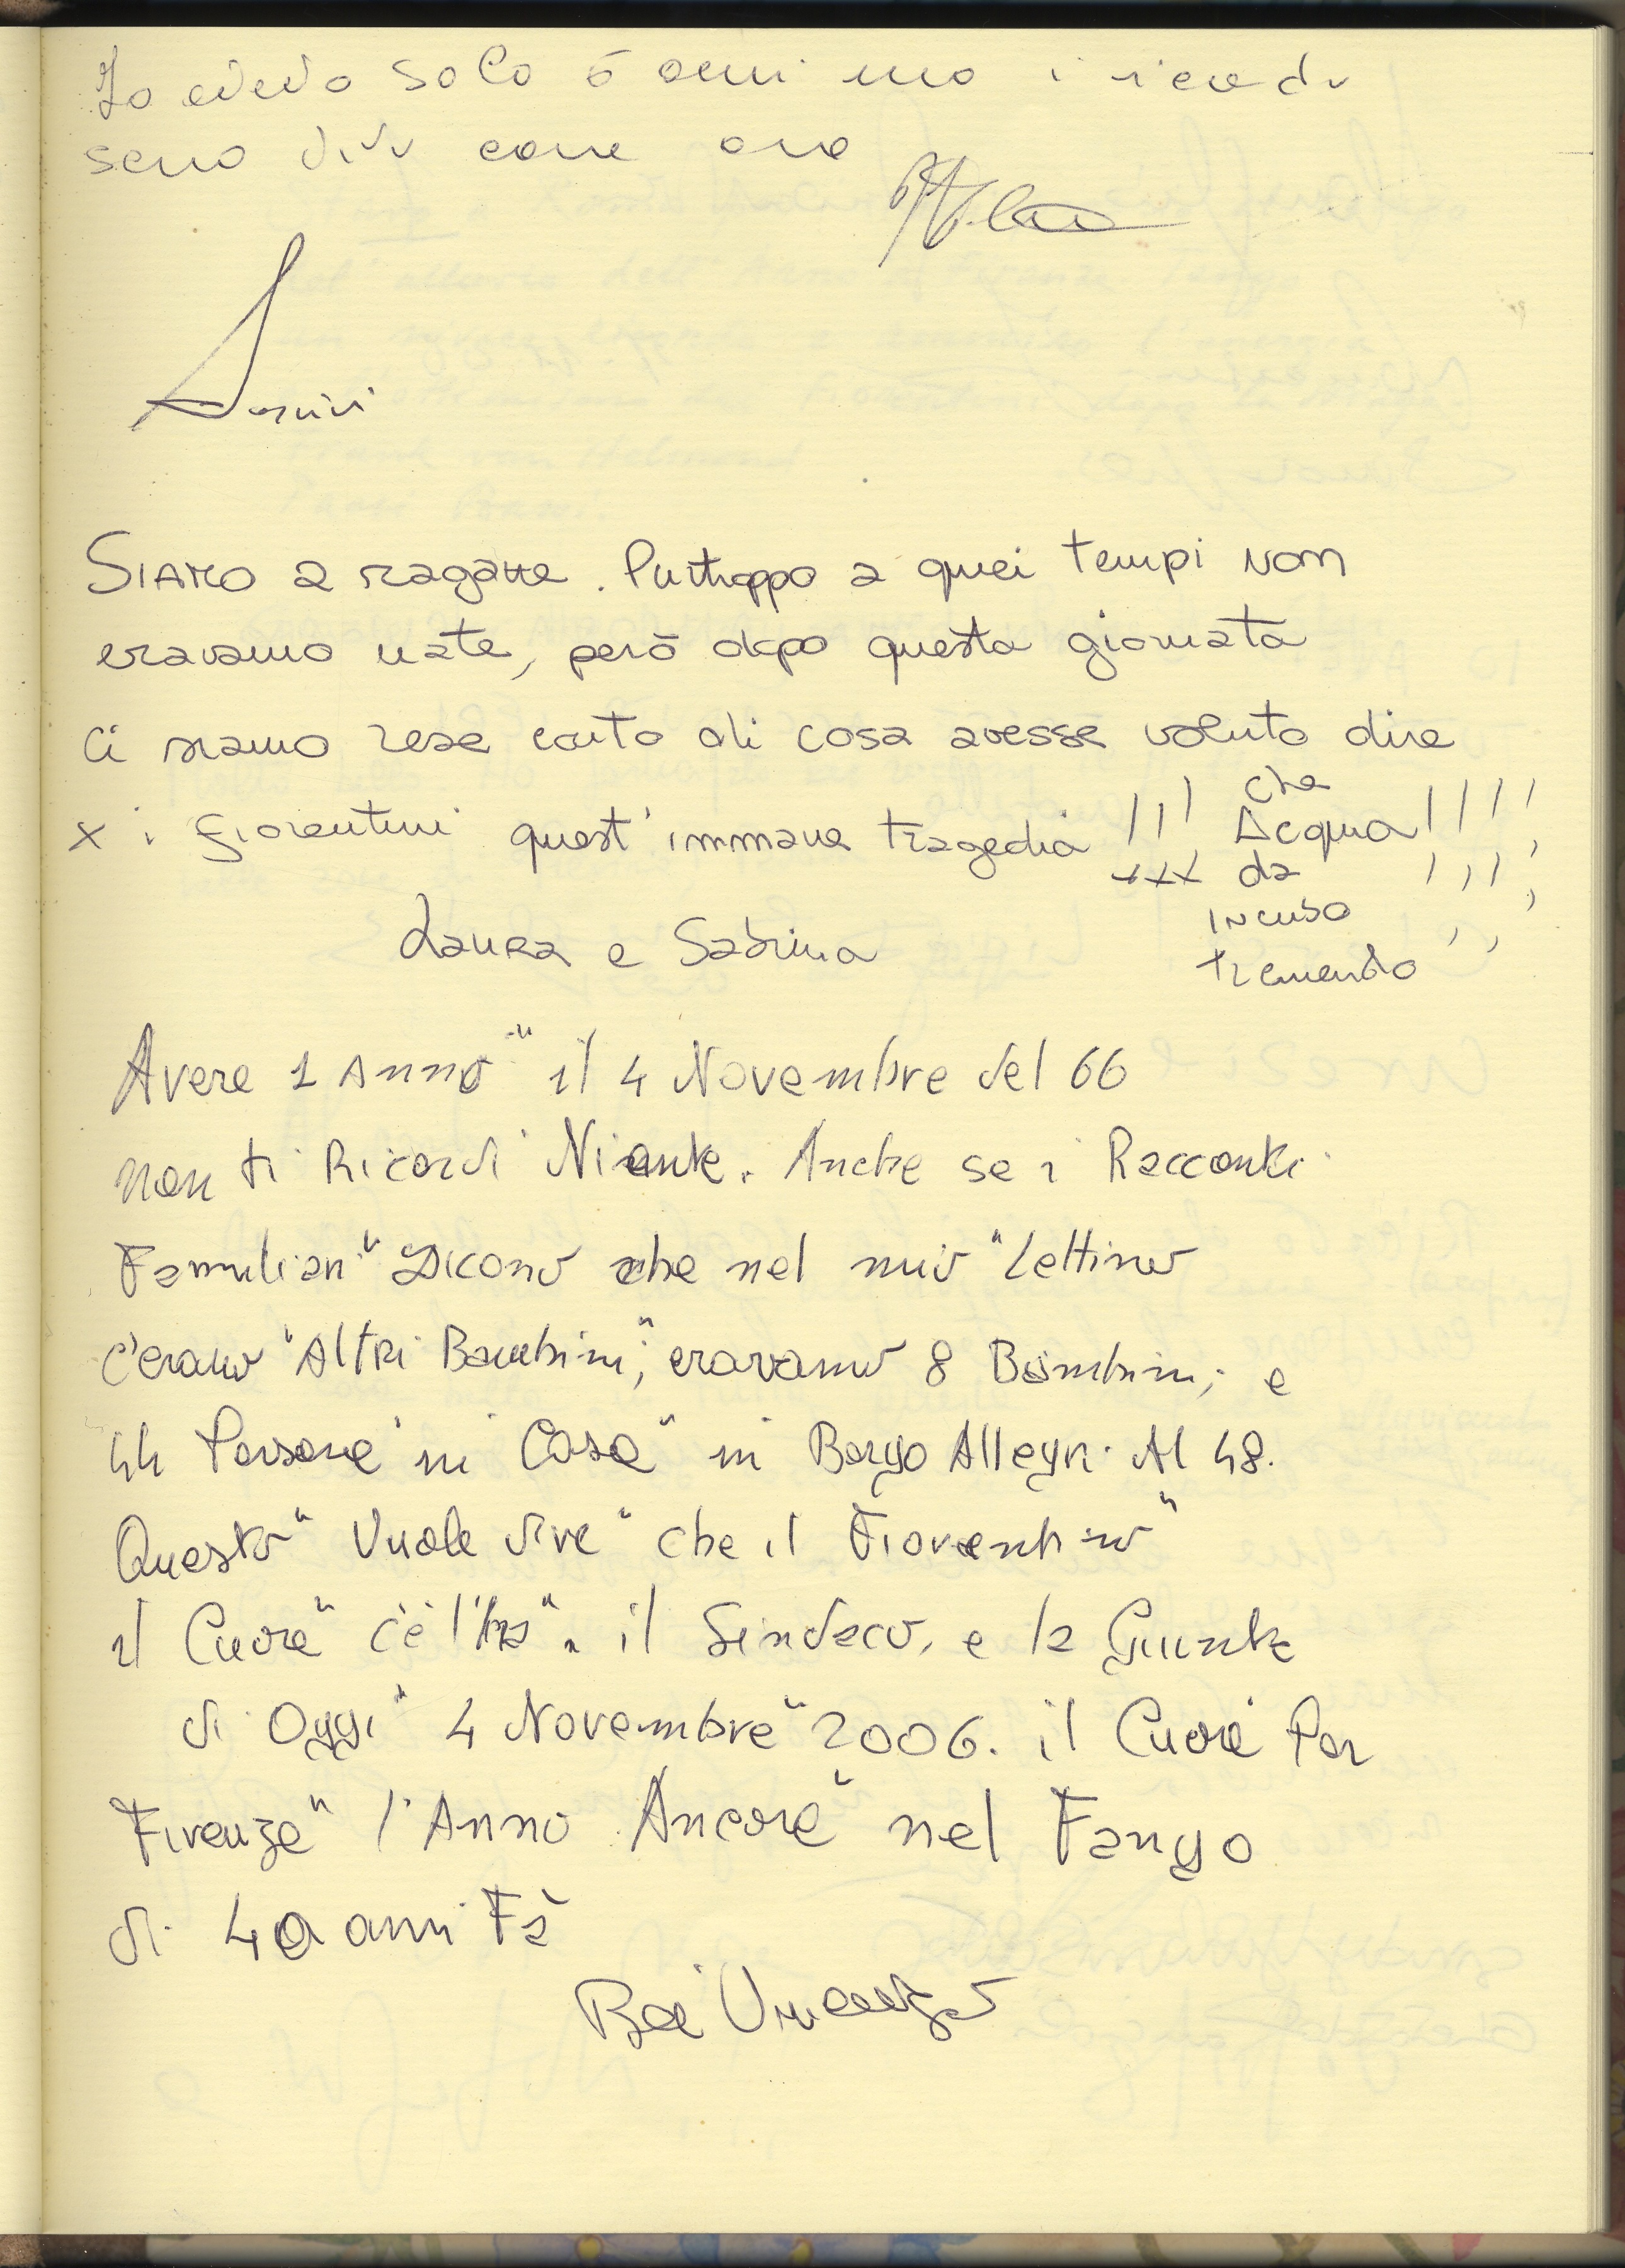 Io avevo solo 6 anni ma i ricordi
sono vivi come ora
Siamo 2 ragazze. Purtroppo a quei tempi non
eravamo nate, però dopo questa giornata
ci siamo rese conto di cosa avesse voluto dire
x i fiorentini quest'immane tragedia !!!
che
Acqua !!!!
da
incubo
tremendo
Laura e Sabrina
Avere 1 Anno" il 4 Novembre del 66
non ti Ricordi Niente. Anche se i Racconti
Familiari" Dicono che nel mio "Lettino
c'erano "Altri Bambini", eravamo 8 Bambini; e
44 Persone in Casa" in Borgo Allegri. Al 48.
Questo" Vuole dire" che il Fiorentino"
il Cuore" c'è l'ha". il Sindaco, e la Giunta
di Oggi" 4 Novembre" 2006. il Cuore Per
Firenze" l'Anno Ancora" nel Fango
di 40 anni Fà
Vincenzo